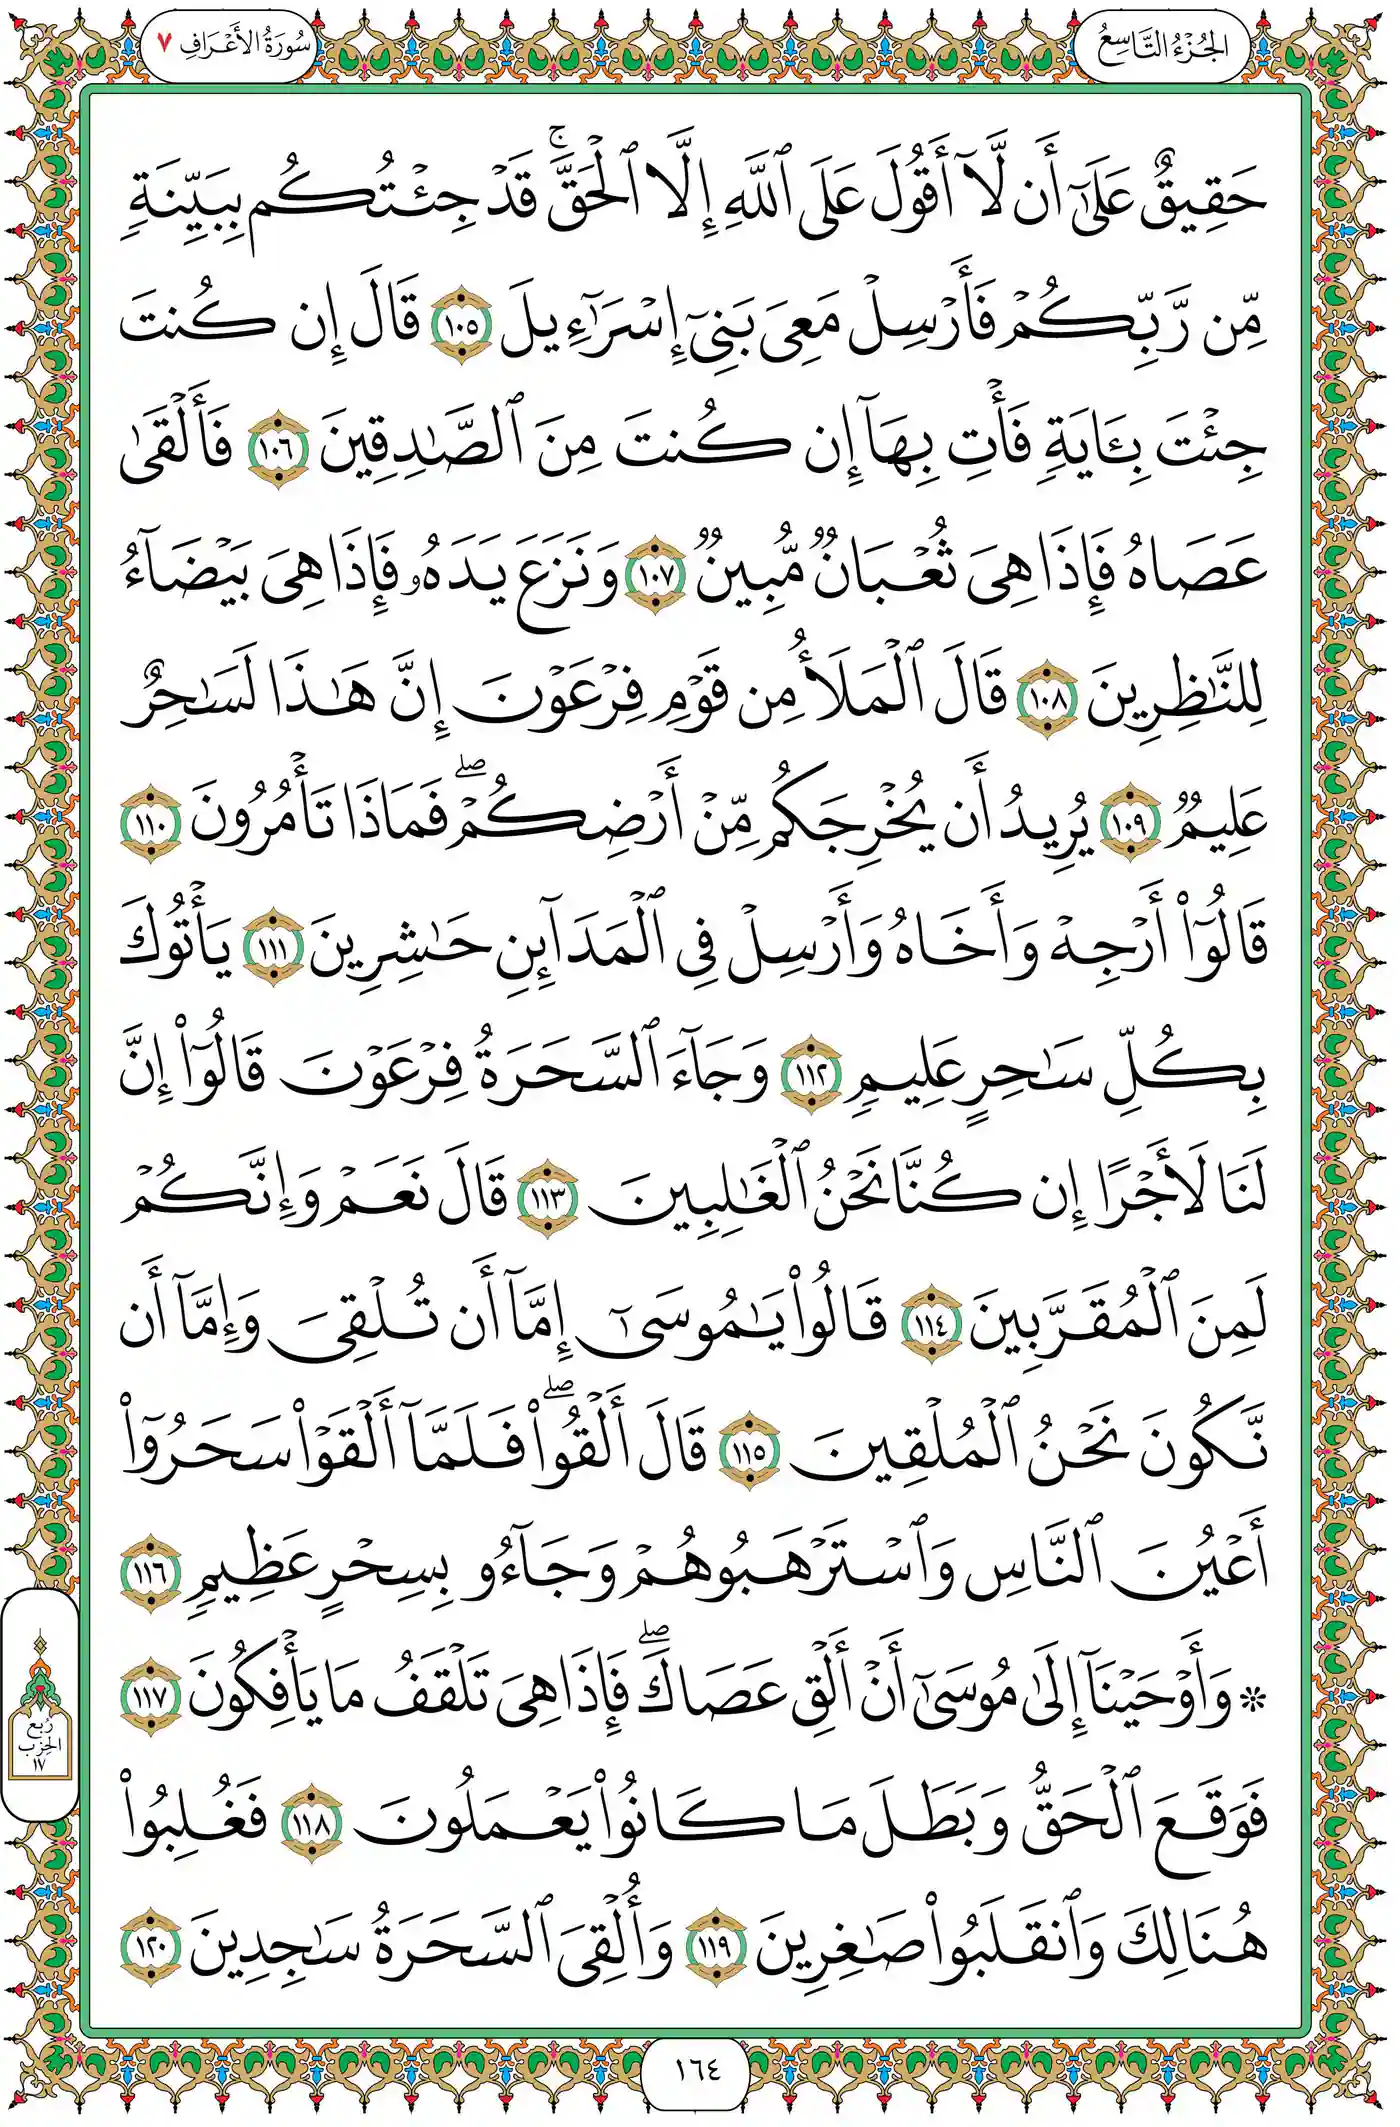 الجُزْءُ التَّاسِعُ
سُورَةُ الأَعْرَافِ ٧
حَقِيقٌ عَلَىٰٓ أَن لَّآ أَقُولَ عَلَى ٱللَّهِ إِلَّا ٱلْحَقَّ ۚ قَدْ جِئْتُكُم بِبَيِّنَةٍ
مِّن رَّبِّكُمْ فَأَرْسِلْ مَعِىَ بَنِىٓ إِسْرَٰٓءِيلَ ١٠٥ قَالَ إِن كُنتَ
جِئْتَ بِـَٔايَةٍ فَأْتِ بِهَآ إِن كُنتَ مِنَ ٱلصَّـٰدِقِينَ ١٠٦ فَأَلْقَىٰ
عَصَاهُ فَإِذَا هِىَ ثُعْبَانٌ مُّبِينٌ ١٠٧ وَنَزَعَ يَدَهُۥ فَإِذَا هِىَ بَيْضَآءُ
لِلنَّـٰظِرِينَ ١٠٨ قَالَ ٱلْمَلَأُ مِن قَوْمِ فِرْعَوْنَ إِنَّ هَـٰذَا لَسَـٰحِرٌ
عَلِيمٌ ١٠٩ يُرِيدُ أَن يُخْرِجَكُم مِّنْ أَرْضِكُمْ ۖ فَمَاذَا تَأْمُرُونَ ١١٠
قَالُوٓا۟ أَرْجِهْ وَأَخَاهُ وَأَرْسِلْ فِى ٱلْمَدَآئِنِ حَـٰشِرِينَ ١١١ يَأْتُوكَ
بِكُلِّ سَـٰحِرٍ عَلِيمٍ ١١٢ وَجَآءَ ٱلسَّحَرَةُ فِرْعَوْنَ قَالُوٓا۟ إِنَّ
لَنَا لَأَجْرًا إِن كُنَّا نَحْنُ ٱلْغَـٰلِبِينَ ١١٣ قَالَ نَعَمْ وَإِنَّكُمْ
لَمِنَ ٱلْمُقَرَّبِينَ ١١٤ قَالُوا۟ يَـٰمُوسَىٰٓ إِمَّآ أَن تُلْقِىَ وَإِمَّآ أَن
نَّكُونَ نَحْنُ ٱلْمُلْقِينَ ١١٥ قَالَ أَلْقُوا۟ ۖ فَلَمَّآ أَلْقَوْا۟ سَحَرُوٓا۟
أَعْيُنَ ٱلنَّاسِ وَٱسْتَرْهَبُوهُمْ وَجَآءُو بِسِحْرٍ عَظِيمٍ ١١٦
۞ وَأَوْحَيْنَآ إِلَىٰ مُوسَىٰٓ أَنْ أَلْقِ عَصَاكَ ۖ فَإِذَا هِىَ تَلْقَفُ مَا يَأْفِكُونَ ١١٧
فَوَقَعَ ٱلْحَقُّ وَبَطَلَ مَا كَانُوا۟ يَعْمَلُونَ ١١٨ فَغُلِبُوا۟
هُنَالِكَ وَٱنقَلَبُوا۟ صَـٰغِرِينَ ١١٩ وَأُلْقِىَ ٱلسَّحَرَةُ سَـٰجِدِينَ ١٢٠
رُبع
الحِزب
١٧
١٦٤